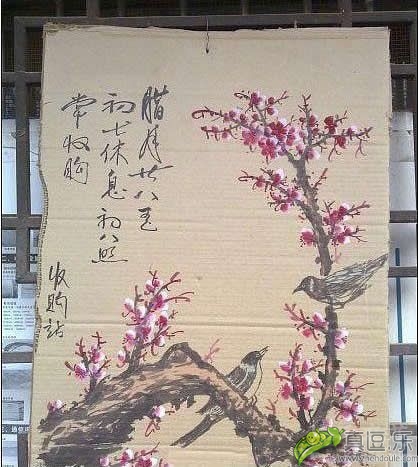 腊月廿八至
初七休息初八照
常收购
收购站
真逗乐